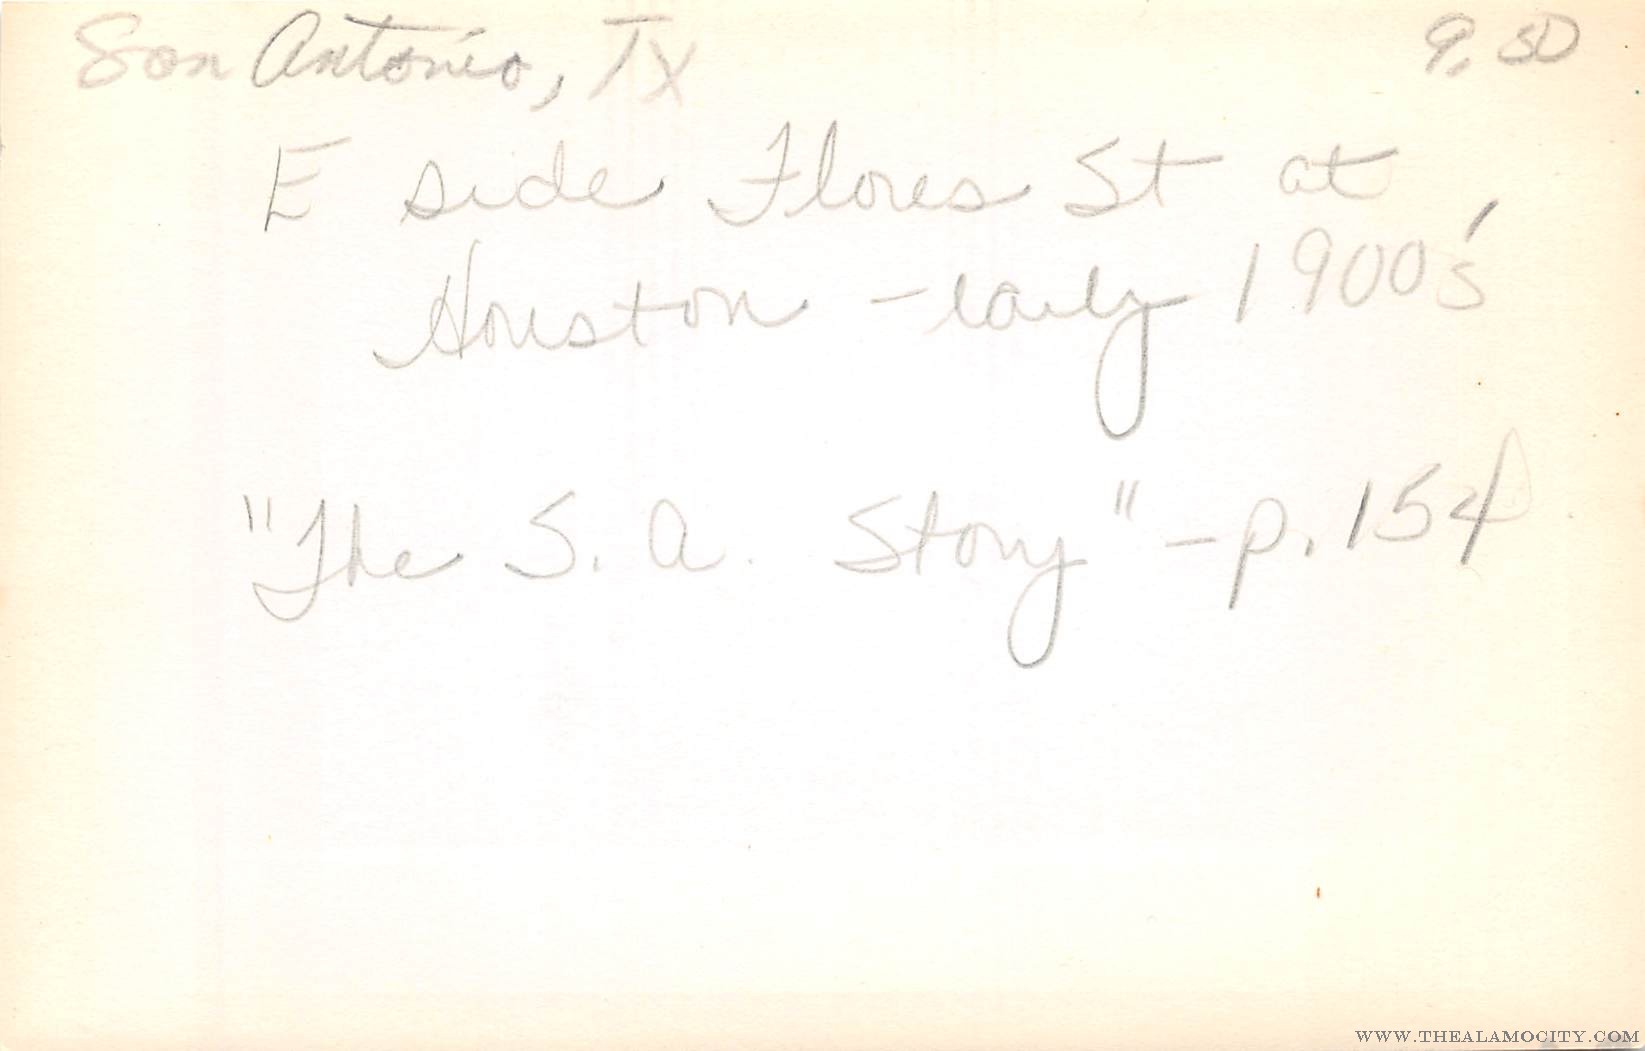 San Antonio, TX 9.50
E side Flores St at
Houston - early 1900's
"The S. A. Story" - p. 154
WWW.THEALAMOCITY.COM